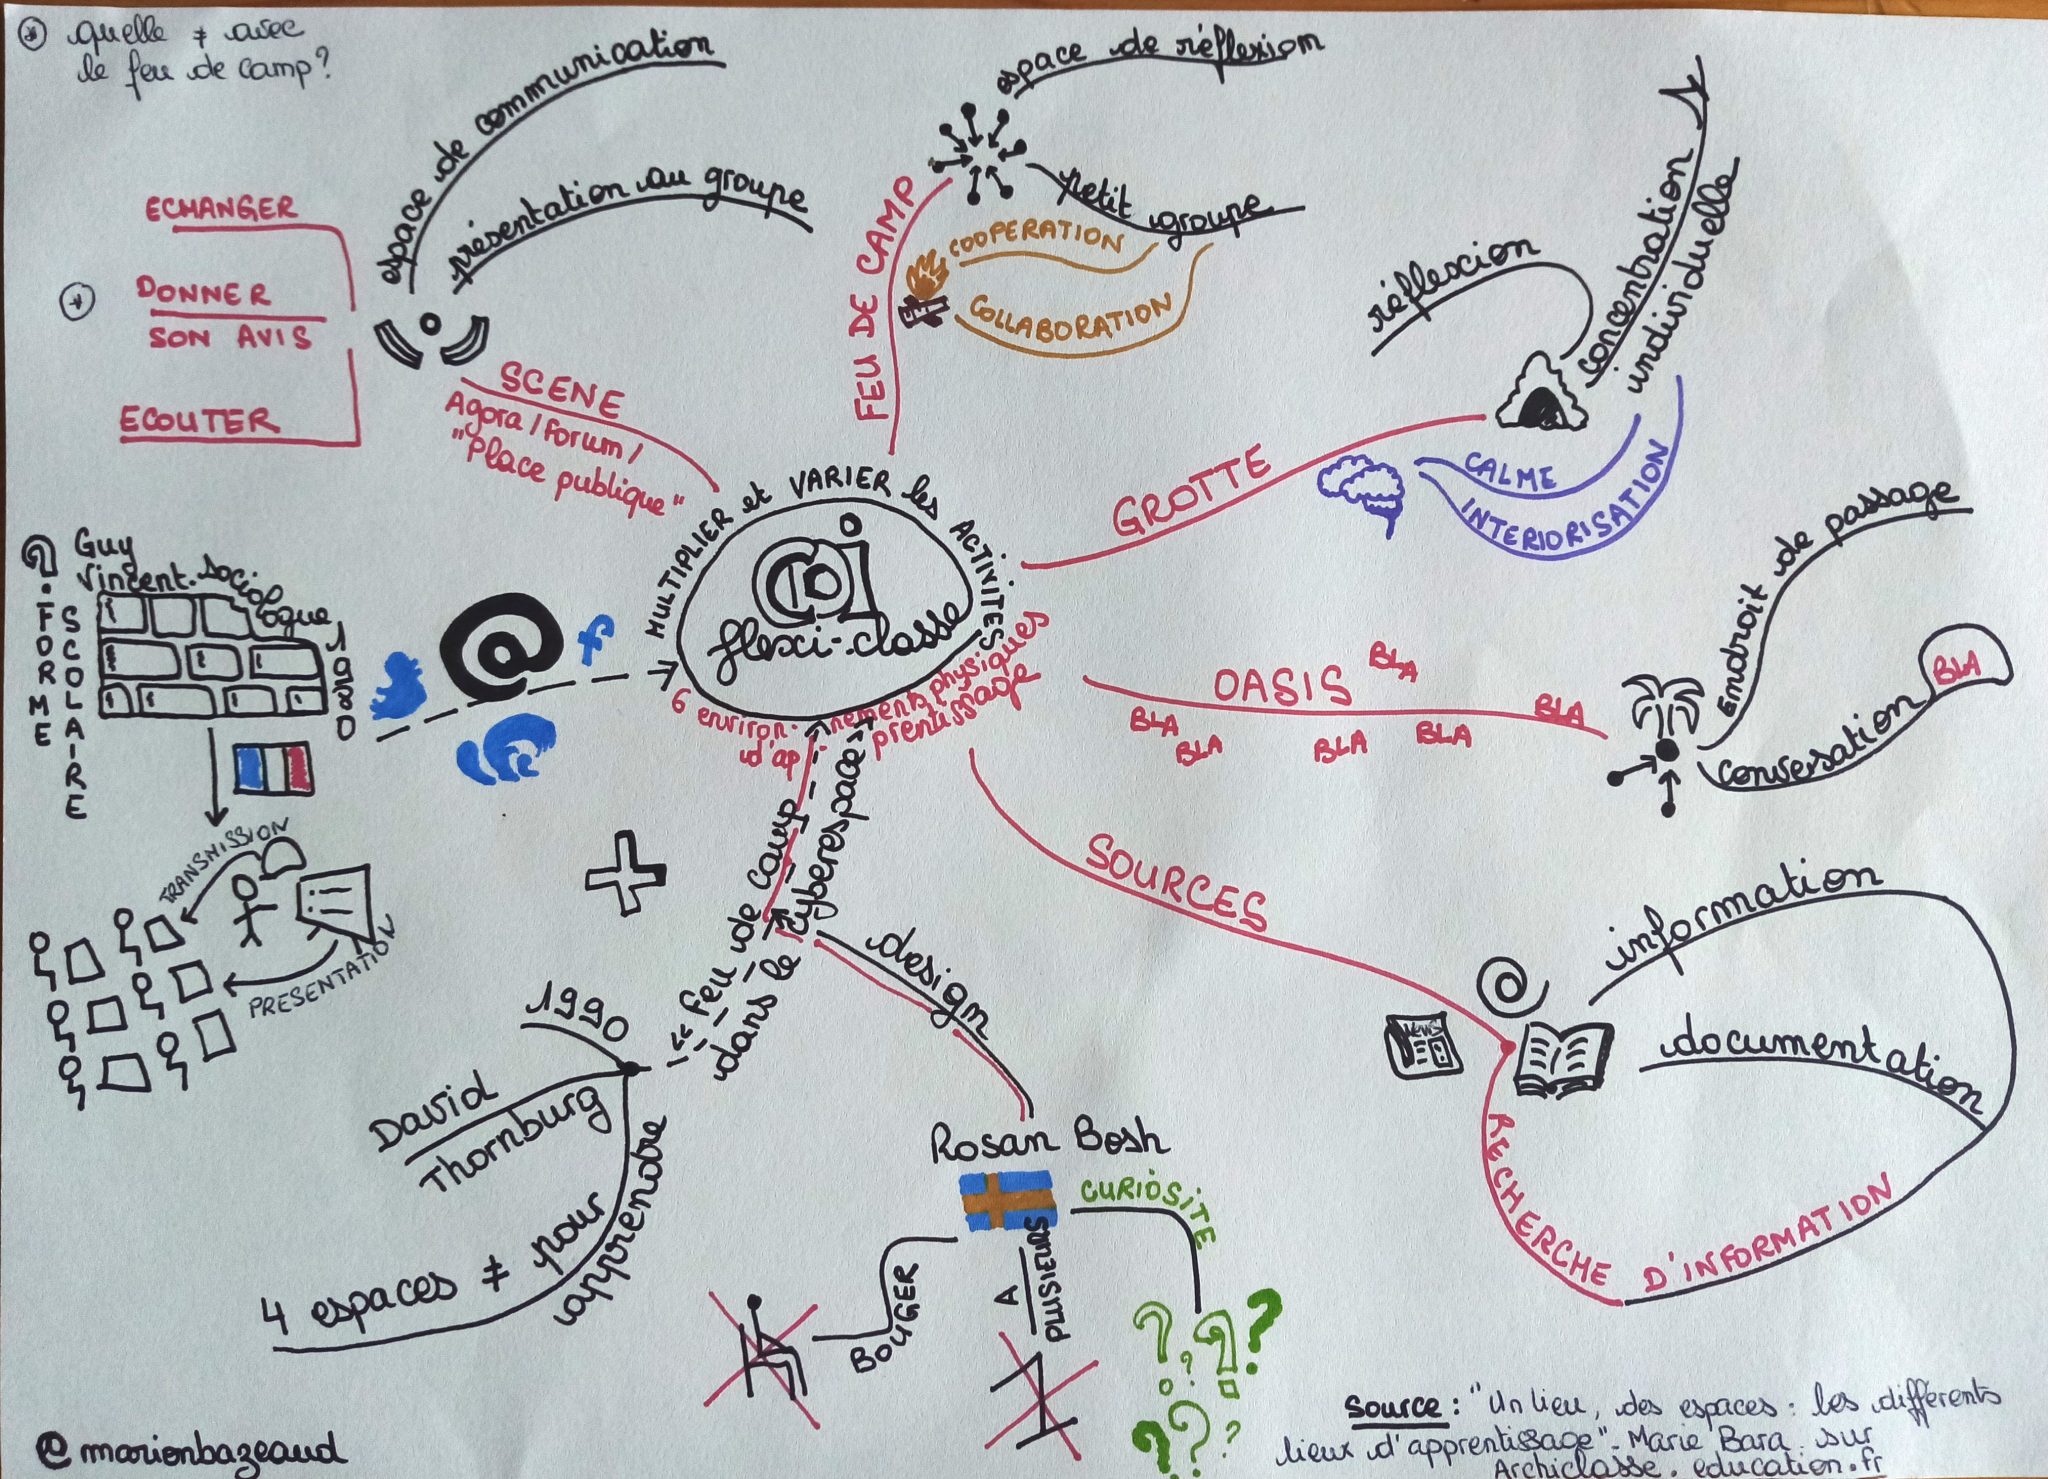 quelle ≠ avec
le feu de camp?
espace de communication
présentation au groupe
ECHANGER
DONNER
SON AVIS
ECOUTER
SCENE
Agora / Forum /
"Place publique"
espace de réflexion
petit groupe
FEU DE CAMP
COOPERATION
COLLABORATION
réflexion
concentration
individuelle
GROTTE
CALME
INTERIORISATION
MULTIPLIER et VARIER les ACTIVITES
flexi-classe
6 environ-nements physiques
d'ap-prentissage
Endroit de passage
conversation
BLA
OASIS
BLA
BLA
BLA
BLA
BLA
BLA
SOURCES
information
documentation
NEWS
RECHERCHE D'INFORMATION
Guy
Vincent. sociologue
1980
FORME
SCOLAIRE
@
f
TRANSMISSION
PRESENTATION
"feu de camp
dans le cyberespace
design
1990
David
Thornburg
4 espaces ≠ pour
apprendre
Rosan Bosh
CURIOSITE
BOUGER
A
PLUSIEURS
Source : "Un lieu, des espaces : les différents
lieux d'apprentissage". Marie Bara sur
Archiclasse.education.fr
@marionbazeaud